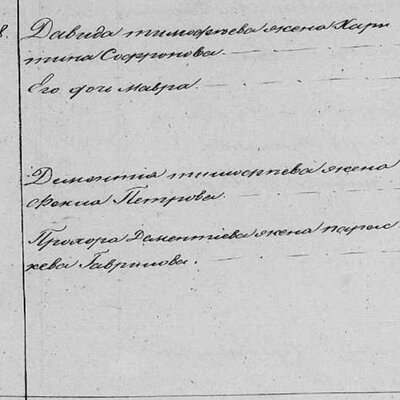 8. Давида тимофѣева жена Хари
тина Софронова.
Его дочь Мавра.
Дементія тимофѣева жена
Фекла Петрова.
Прохора Дементіева жена парас
кева Гаврилова.